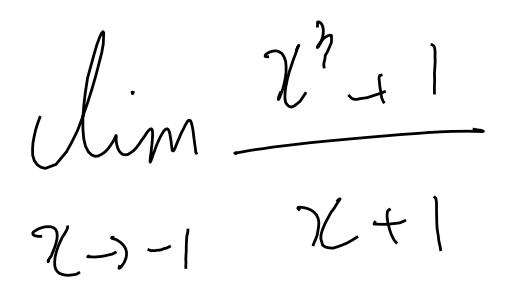 lim x³ + 1
x → -1 x + 1